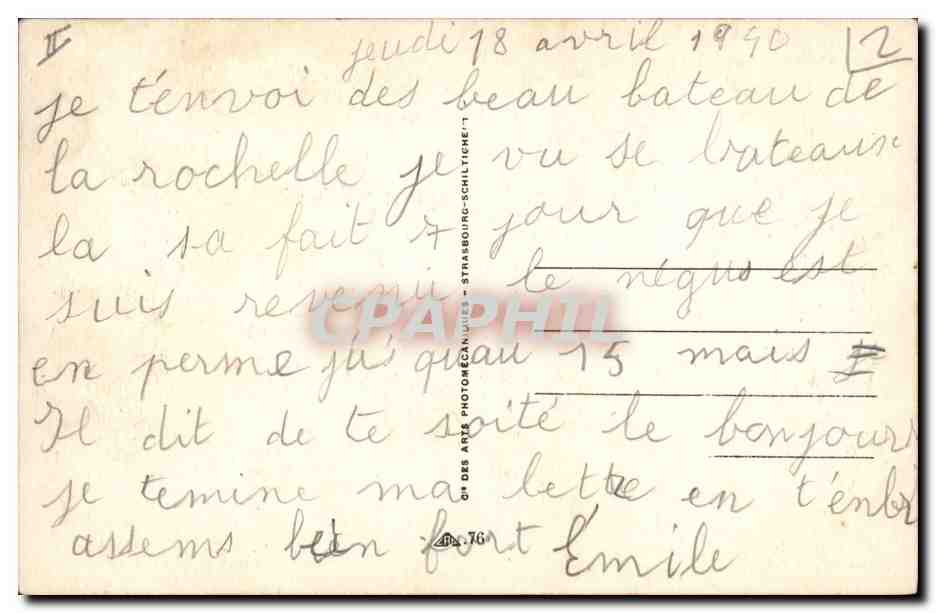 II jeudi 18 avril 1940 12
je t'envoi des beau bateau de
la rochelle je vu se bateaux
la sa fait 7 jour que je
suis revenu le négus est
en perme jus'quau 15 mais
Il dit de te soité le bonjour
je temine ma lettre en t'enbr
assems bein fort Emile
Cie DES ARTS PHOTOMÉCANIQUES - STRASBOURG-SCHILTIGHEIM
76
CPAPHIL